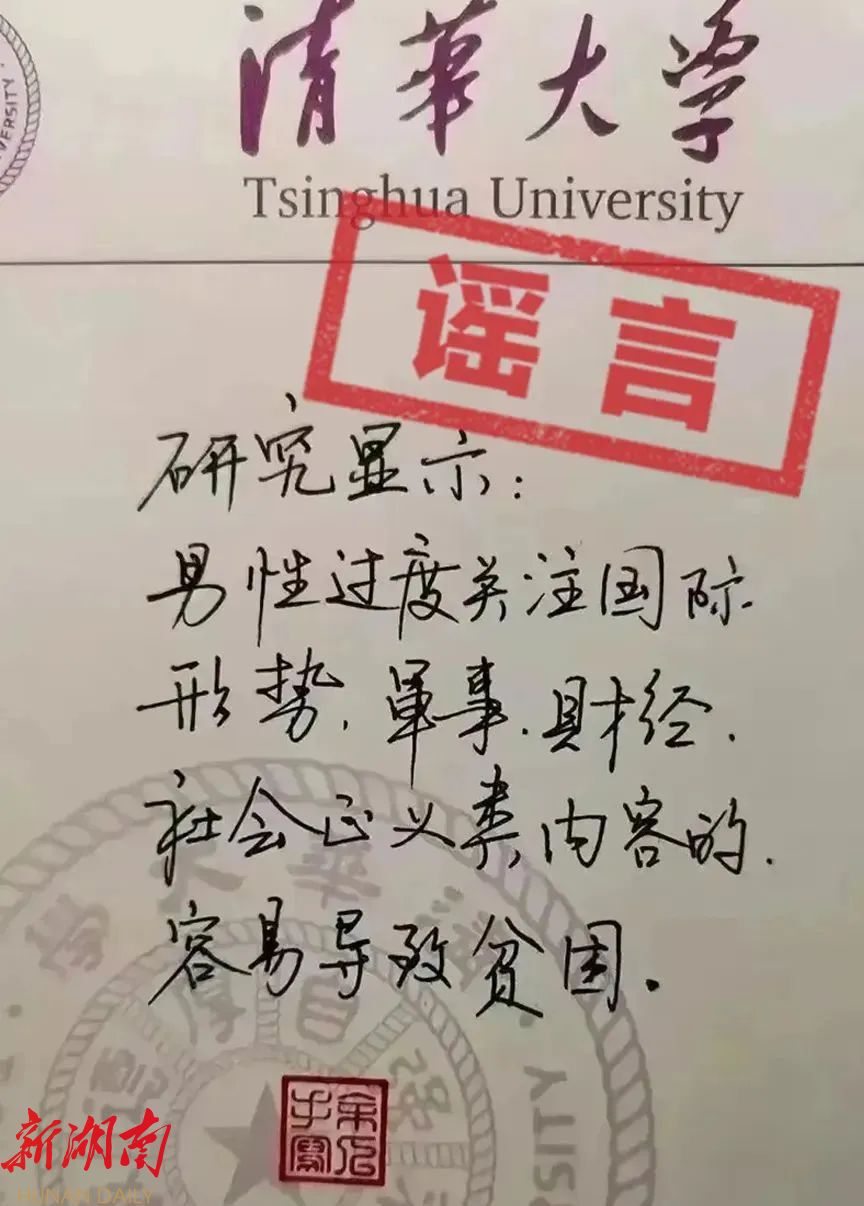 清華大学
Tsinghua University
谣言
研究显示:
男性过度关注国际
形势、军事、财经、
社会正义类内容的,
容易导致贫困。
新湖南
HUNAN DAILY